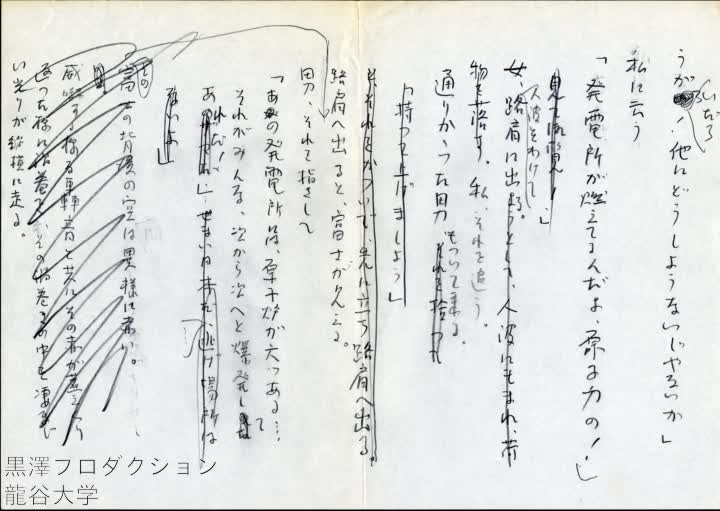 うが！他にどうしようないじやないか」
私に云う
「発電所が燃えてるんだよ、原子力の！」
人波をわけて
女、路肩に出ようとして、人波にもまれ、荷
物を落す。私、それを追う。
通りかかった男、それを拾つて
「持つて上げましよう」
それをかついで、先に立ち路肩へ出る。
路肩へ出ると、富士が見える。
男、それを指さして
「あの発電所には、原子炉が六つある…
それがみんな、次から次へと爆発し
逃げ場所は
ないよ」
その
富士の背後の空は異様に赤い。
威嚇する様な轟音と共にその赤が
渦巻き、その渦巻きの中を凄
い光りが縦横に走る。
黒澤プロダクション
龍谷大学